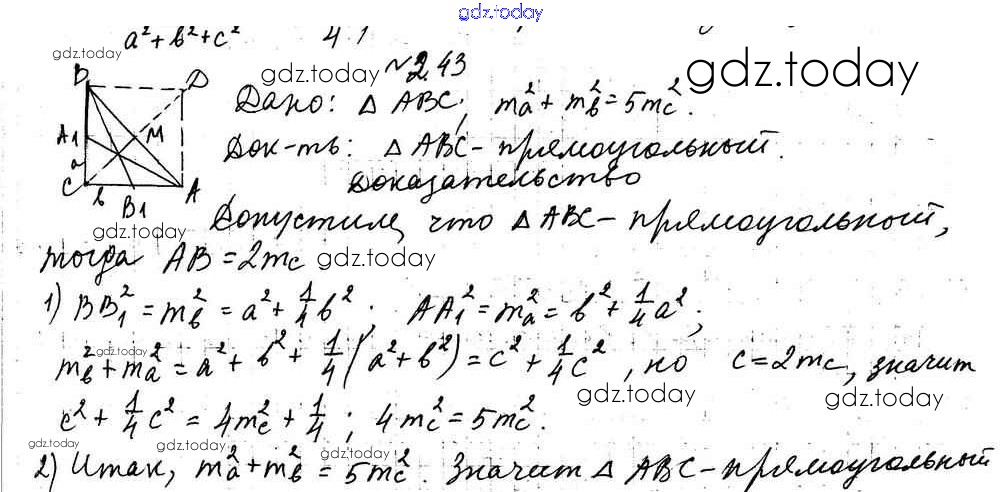 gdz.today
a² + b² + c² 4.1
gdz.today
№ 2.43
gdz.today
gdz.today
B D
Дано: △ ABC; mₐ² + m_b² = 5m_c².
A1 M
Док-ть: △ ABC - прямоугольный.
a
C A
Доказательство
b B1
Допустим, что △ ABC - прямоугольный,
gdz.today
тогда AB = 2m_c gdz.today
1) BB₁² = m_b² = a² + 1/4 b²; AA₁² = mₐ² = b² + 1/4 a²;
gdz.today
m_b² + mₐ² = a² + b² + 1/4 (a² + b²) = c² + 1/4 c², но c = 2m_c, значит
gdz.today gdz.today
c² + 1/4 c² = 4m_c² + 1/4; 4m_c² = 5m_c².
gdz.today gdz.today gdz.today
2) Итак, mₐ² + m_b² = 5m_c². Значит △ ABC - прямоугольный